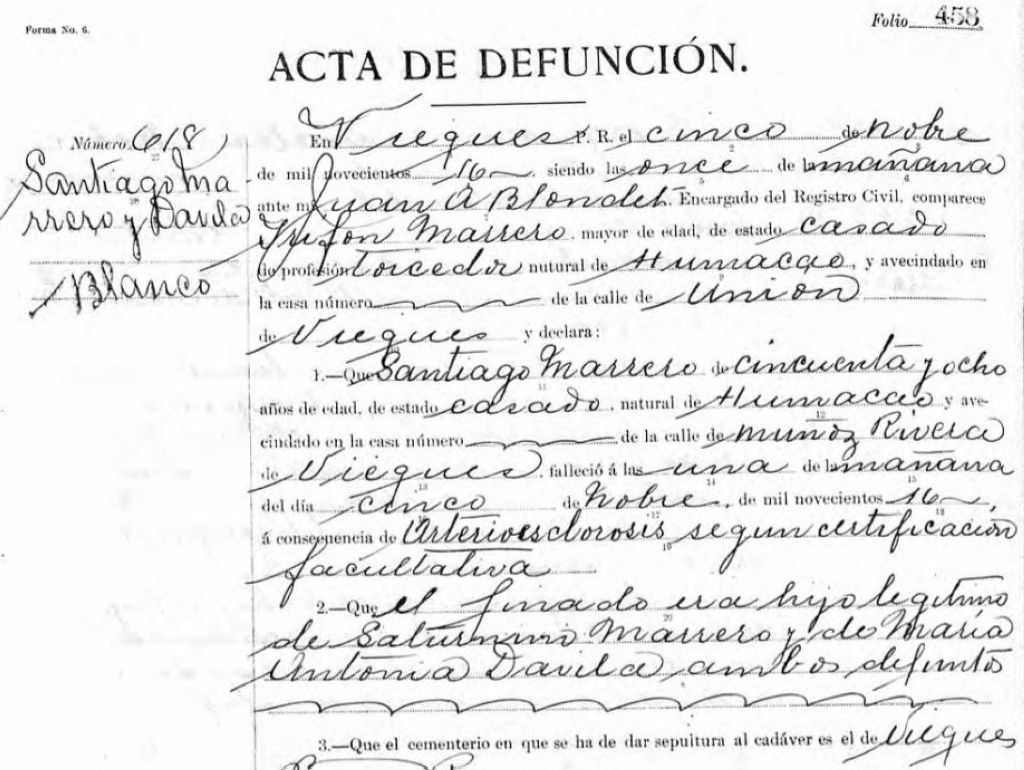 Forma No. 6.
Folio 458
ACTA DE DEFUNCIÓN.
Número 618
Santiago Ma-
rrero y Davila
Blanco
En Vieques P. R. el cinco de Nobre
de mil novecientos 16 siendo las once de la mañana
ante mi Juan A Blondet. Encargado del Registro Civil, comparece
Trifon Marrero. mayor de edad, de estado casado
de profesión torcedor natural de Humacao, y avecindado en
la casa número de la calle de Unión
de Vieques y declara:
1.—Que Santiago Marrero de cincuenta y ocho
años de edad, de estado casado, natural de Humacao y ave-
cindado en la casa número de la calle de Muñoz Rivera
de Vieques, falleció á las una de la mañana
del día cinco de Nobre, de mil novecientos 16
á consecuencia de Arterioesclorosis segun certificación
facultativa
2.—Que el finado era hijo legitimo
de Saturnino Marrero y de Maria
Antonia Davila, ambos defuntos
3.—Que el cementerio en que se ha de dar sepultura al cadáver es el de Vieques